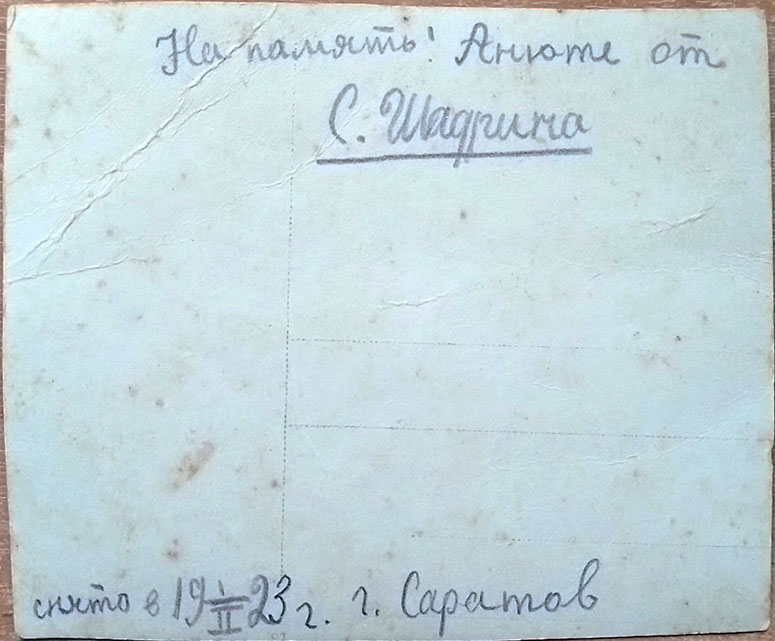 На память! Анюте от
С. Шадрина
снято в 19 1/II 23 г. г. Саратов